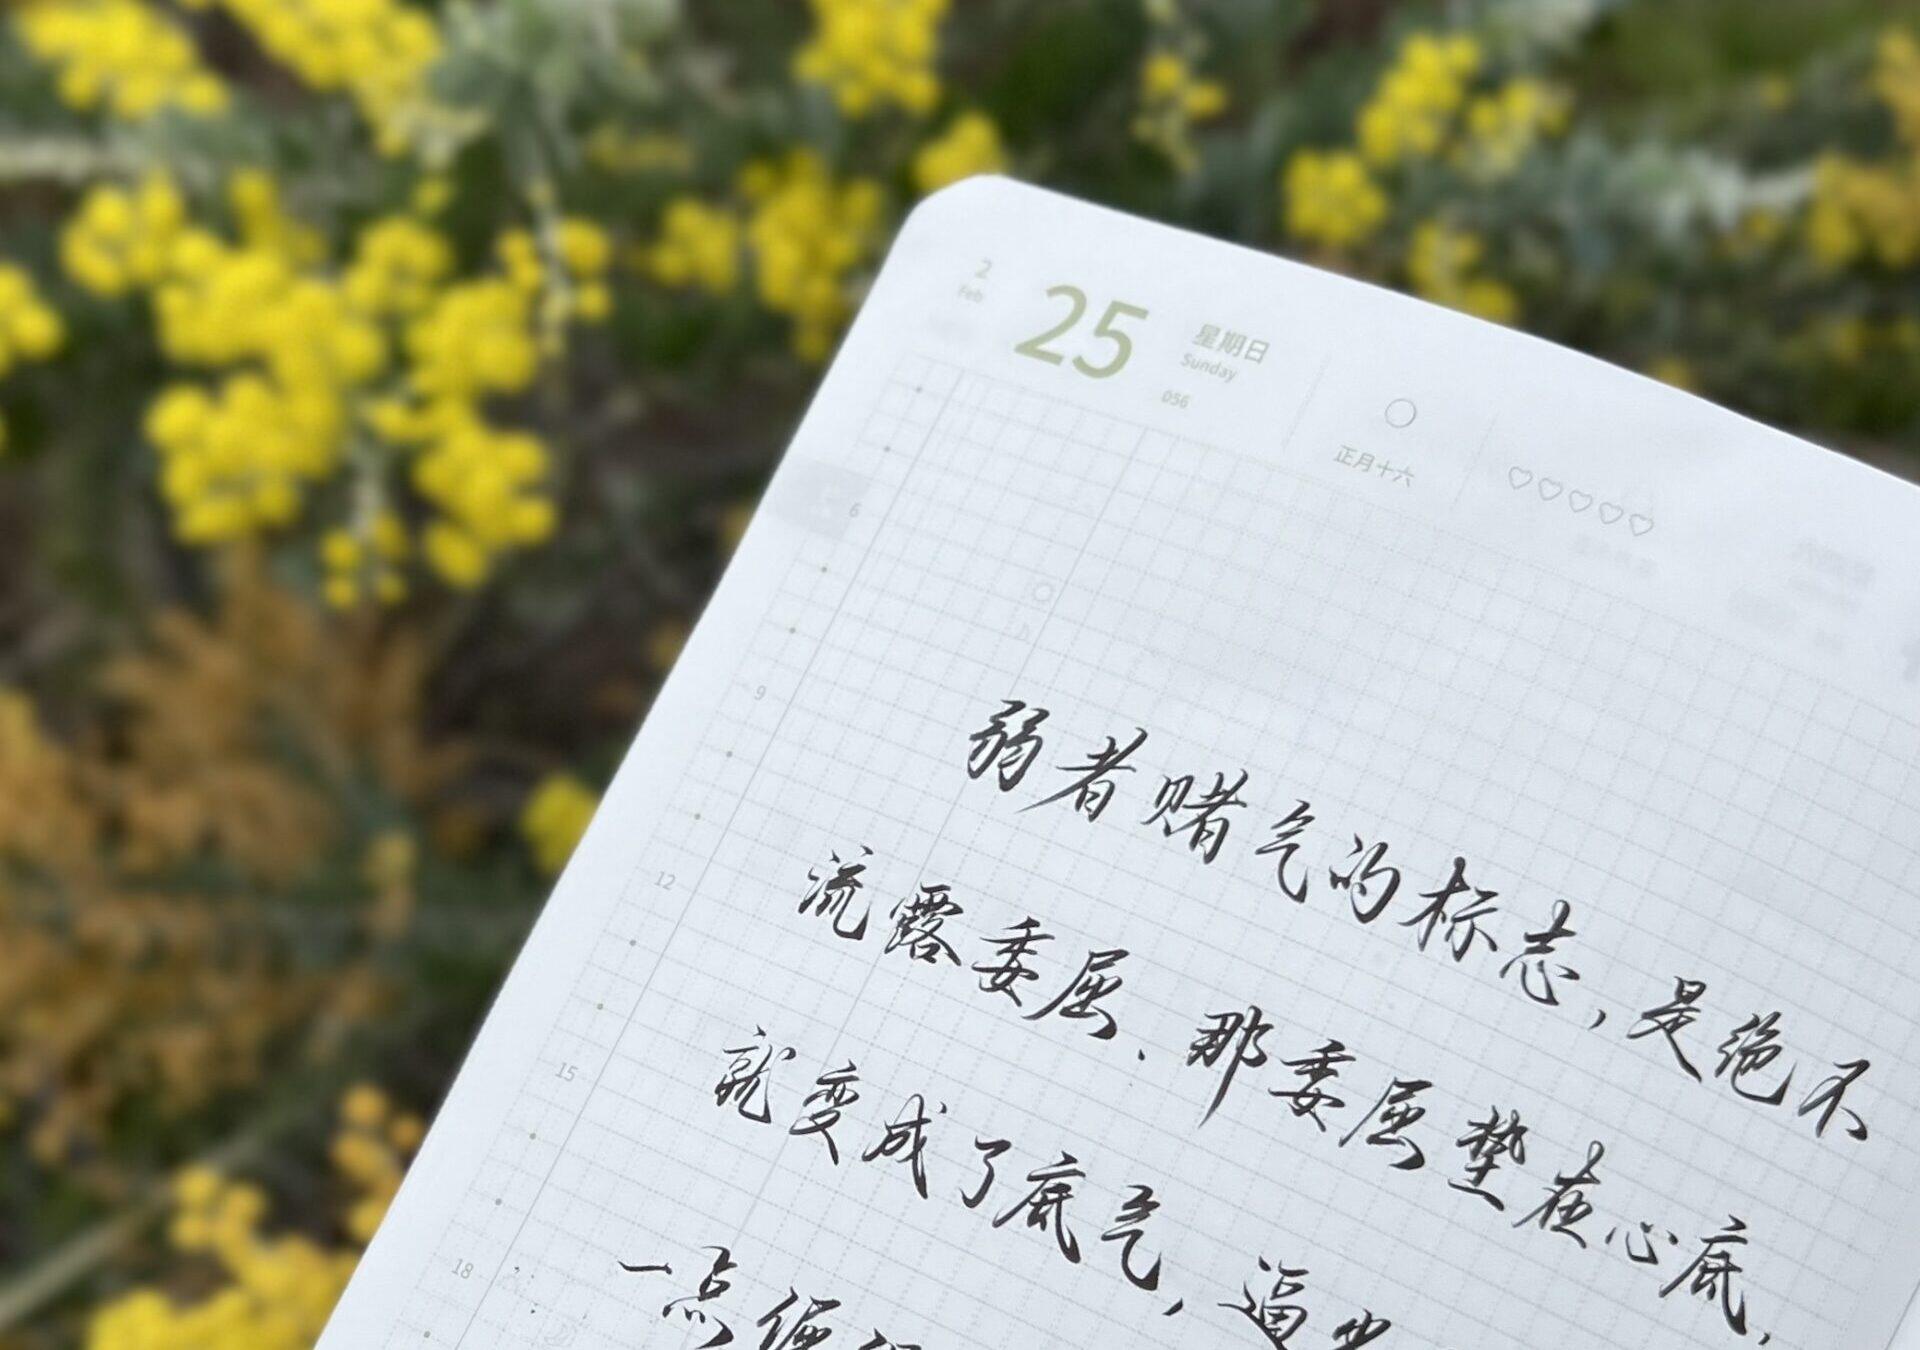 2
Feb
25
星期日
Sunday
056
正月十六
6
9
12
15
18
弱者赌气的标志，是绝不
流露委屈、那委屈垫在心底，
就变成了底气，逼出
一点倔